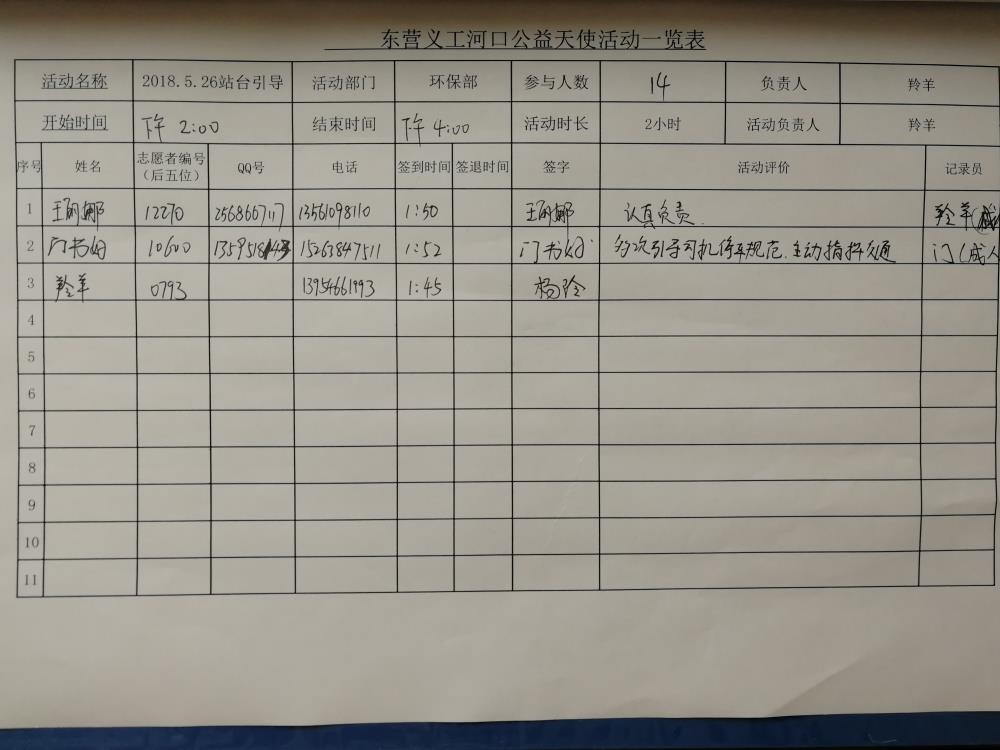 东营义工河口公益天使活动一览表
活动名称 2018.5.26站台引导 活动部门 环保部 参与人数 14 负责人 羚羊
开始时间 下午 2:00 结束时间 下午 4:00 活动时长 2小时 活动负责人 羚羊
序号 姓名 志愿者编号 QQ号 电话 签到时间 签退时间 签字 活动评价 记录员
(后五位)
1 王丽娜 12270 2568667117 13561098110 1:50 王丽娜 认真负责. 羚羊
2 门书 10600 15263847511 1:52 门书 多次引导司机停车规范.主动指挥交通 门(成人
3 羚羊 0793 13954661993 1:45 杨玲
4
5
6
7
8
9
10
11